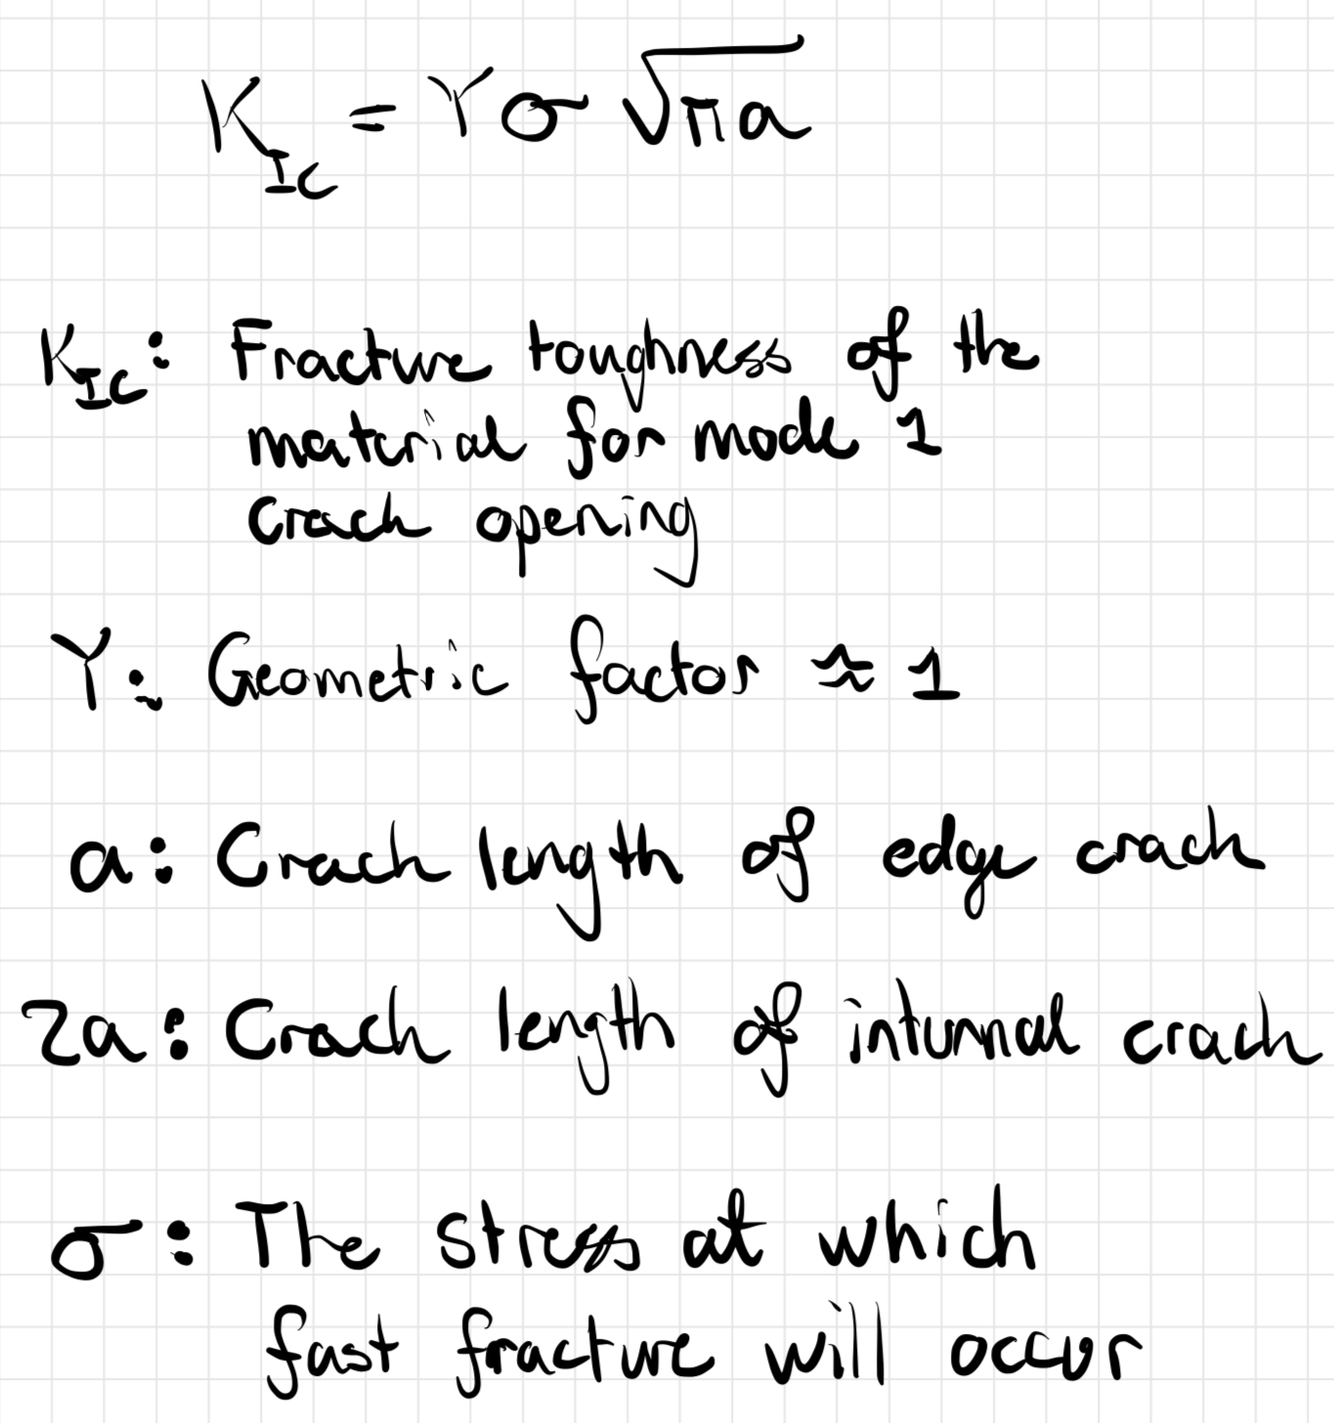 K_IC = Yσ √πa
K_IC: Fracture toughness of the
material for mode 1
crack opening
Y: Geometric factor ≈ 1
a: Crack length of edge crack
2a: Crack length of internal crack
σ: The stress at which
fast fracture will occur